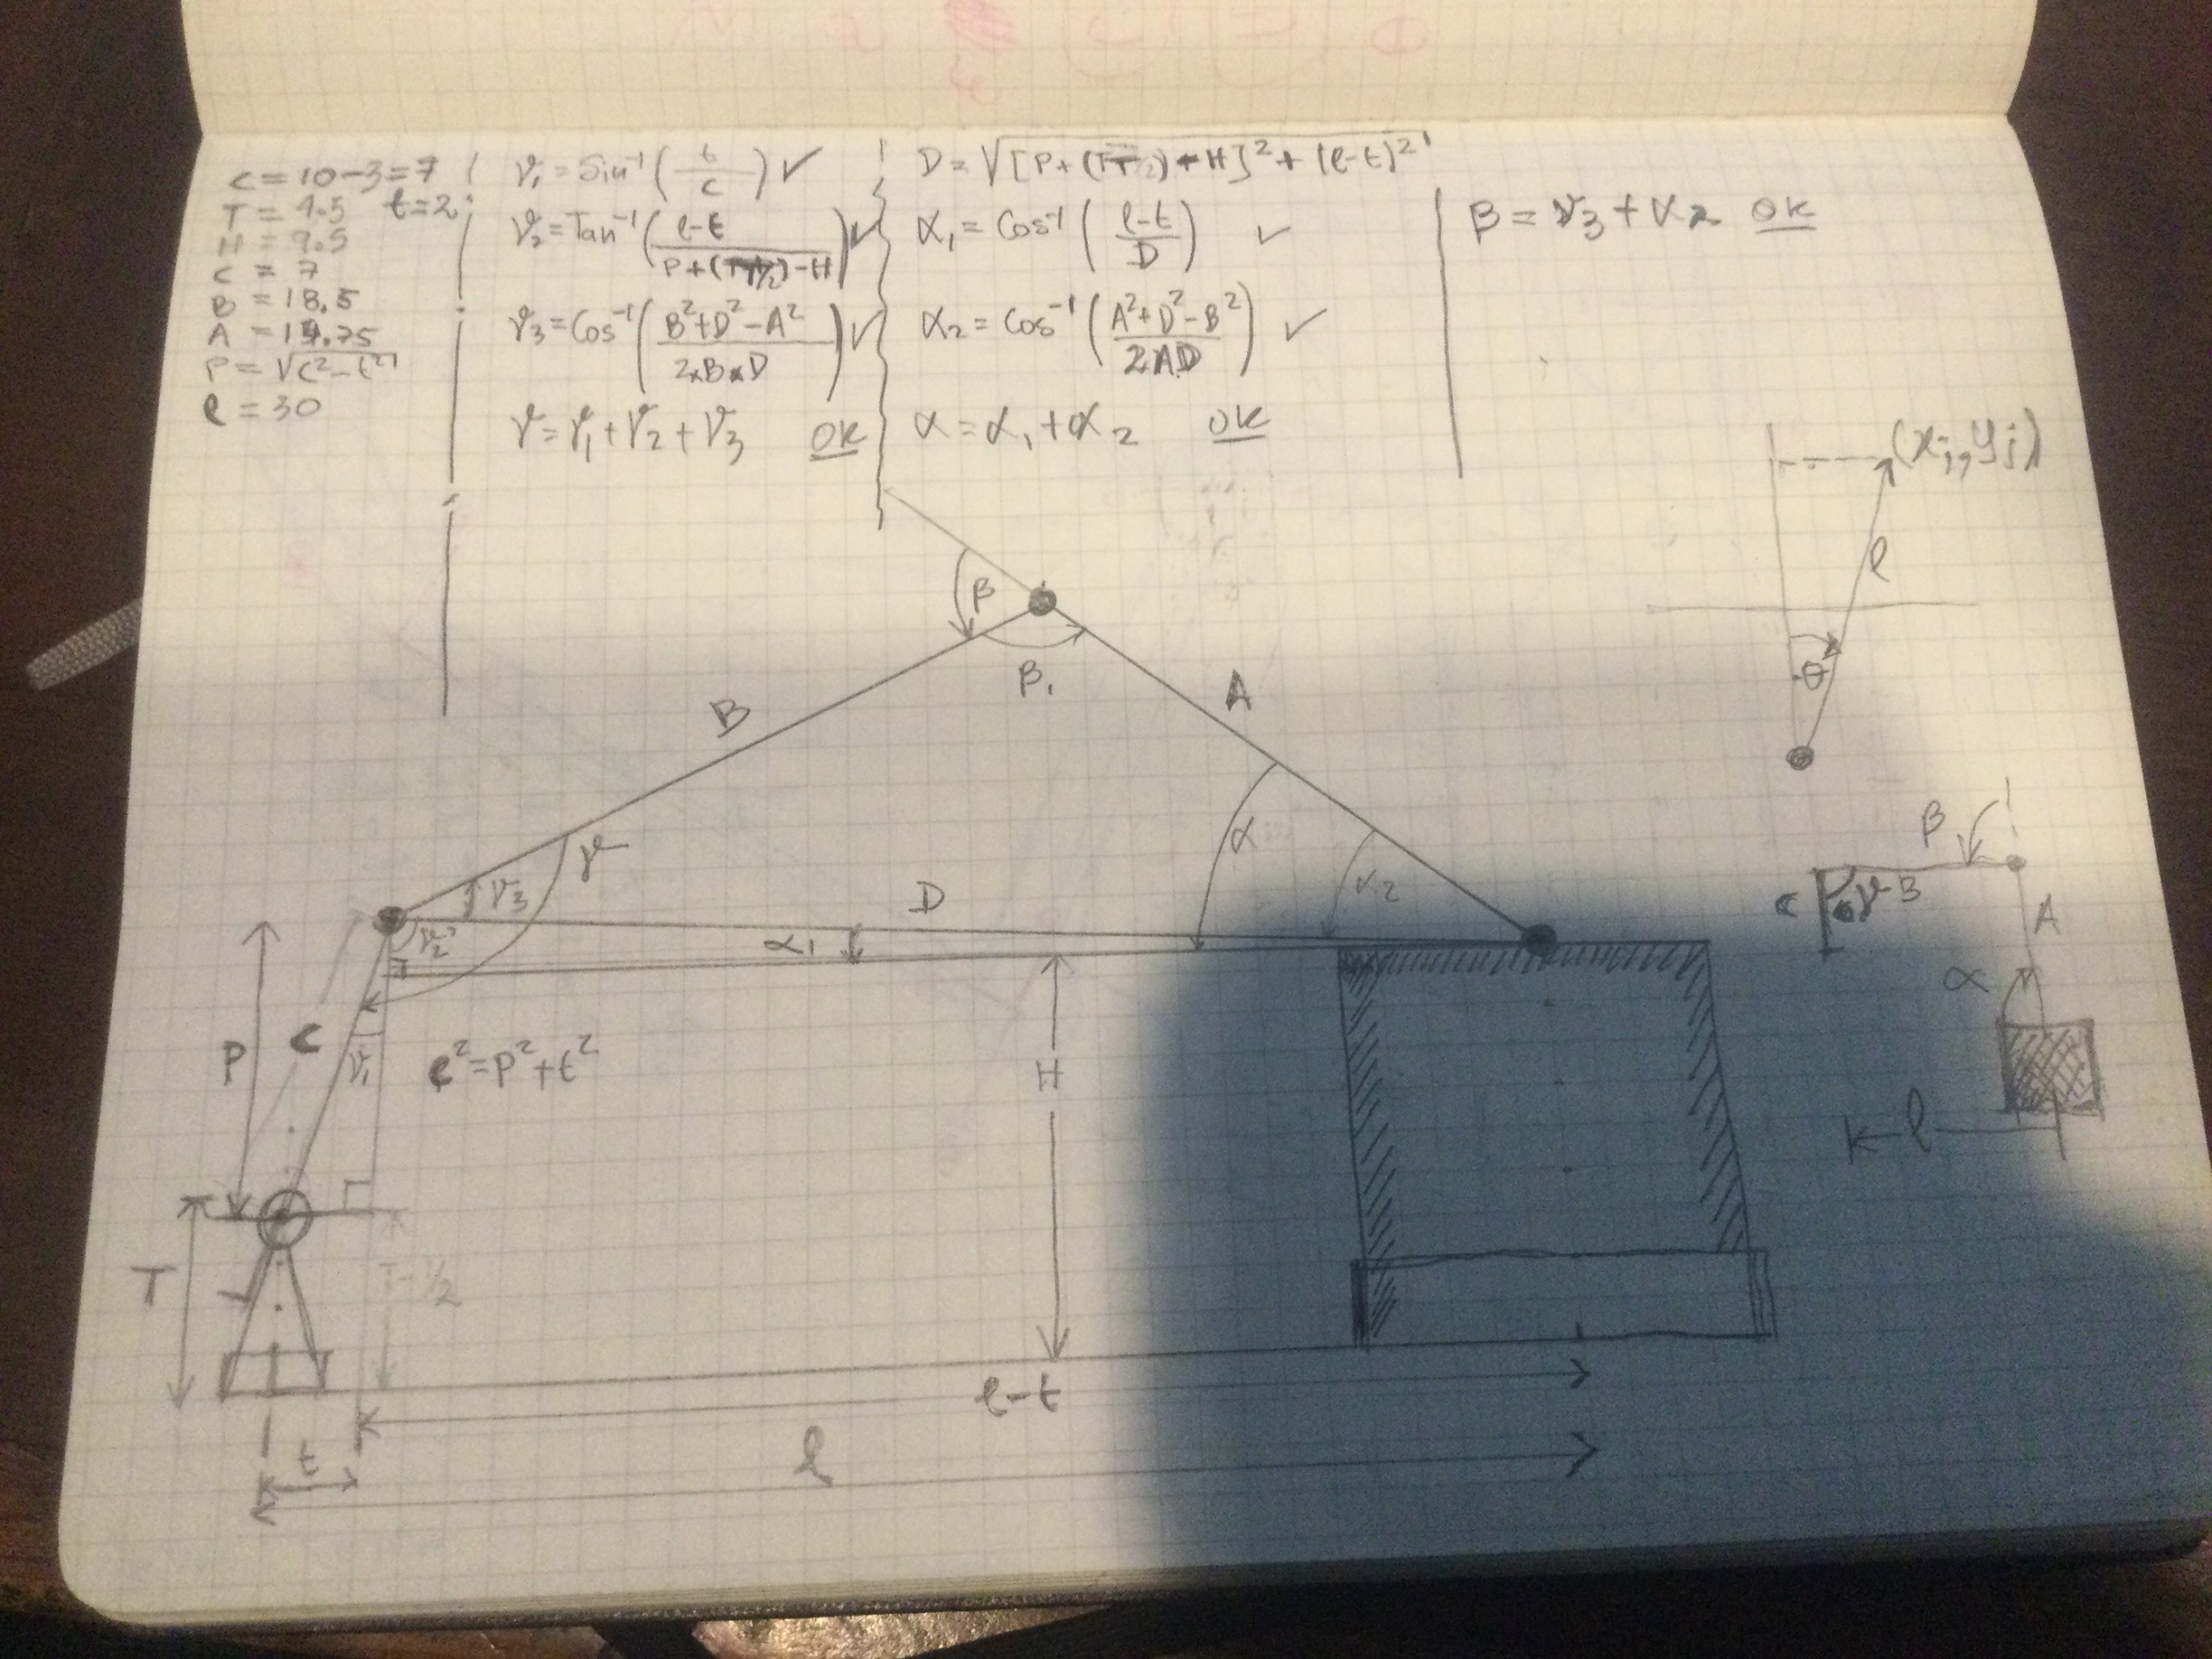 C = 10-3=7
T = 9.5 t=2
H = 9.5
C = 7
B = 18.5
A = 14.75
P = √(C²-t²)
l = 30
γ₁ = Sin⁻¹ (t/C) ✓
γ₂ = Tan⁻¹ ((l-t)/(P+(T-T/2)-H)) ✓
γ₃ = Cos⁻¹ ((B²+D²-A²)/(2×B×D)) ✓
γ = γ₁+γ₂+γ₃ OK
D = √([P+(T-T/2)-H]²+(l-t)²)
α₁ = Cos⁻¹ ((l-t)/D) ✓
α₂ = Cos⁻¹ ((A²+D²-B²)/(2AD)) ✓
α = α₁+α₂ OK
β = γ₃+α₂ OK
(xj, yj)
l
θ
β
β₁
B
A
γ
γ₃
γ₂
D
α₁
α
α₂
β
C
γ
A
α
l
P
C
γ₁
C²=P²+t²
H
T
l-t
t
l